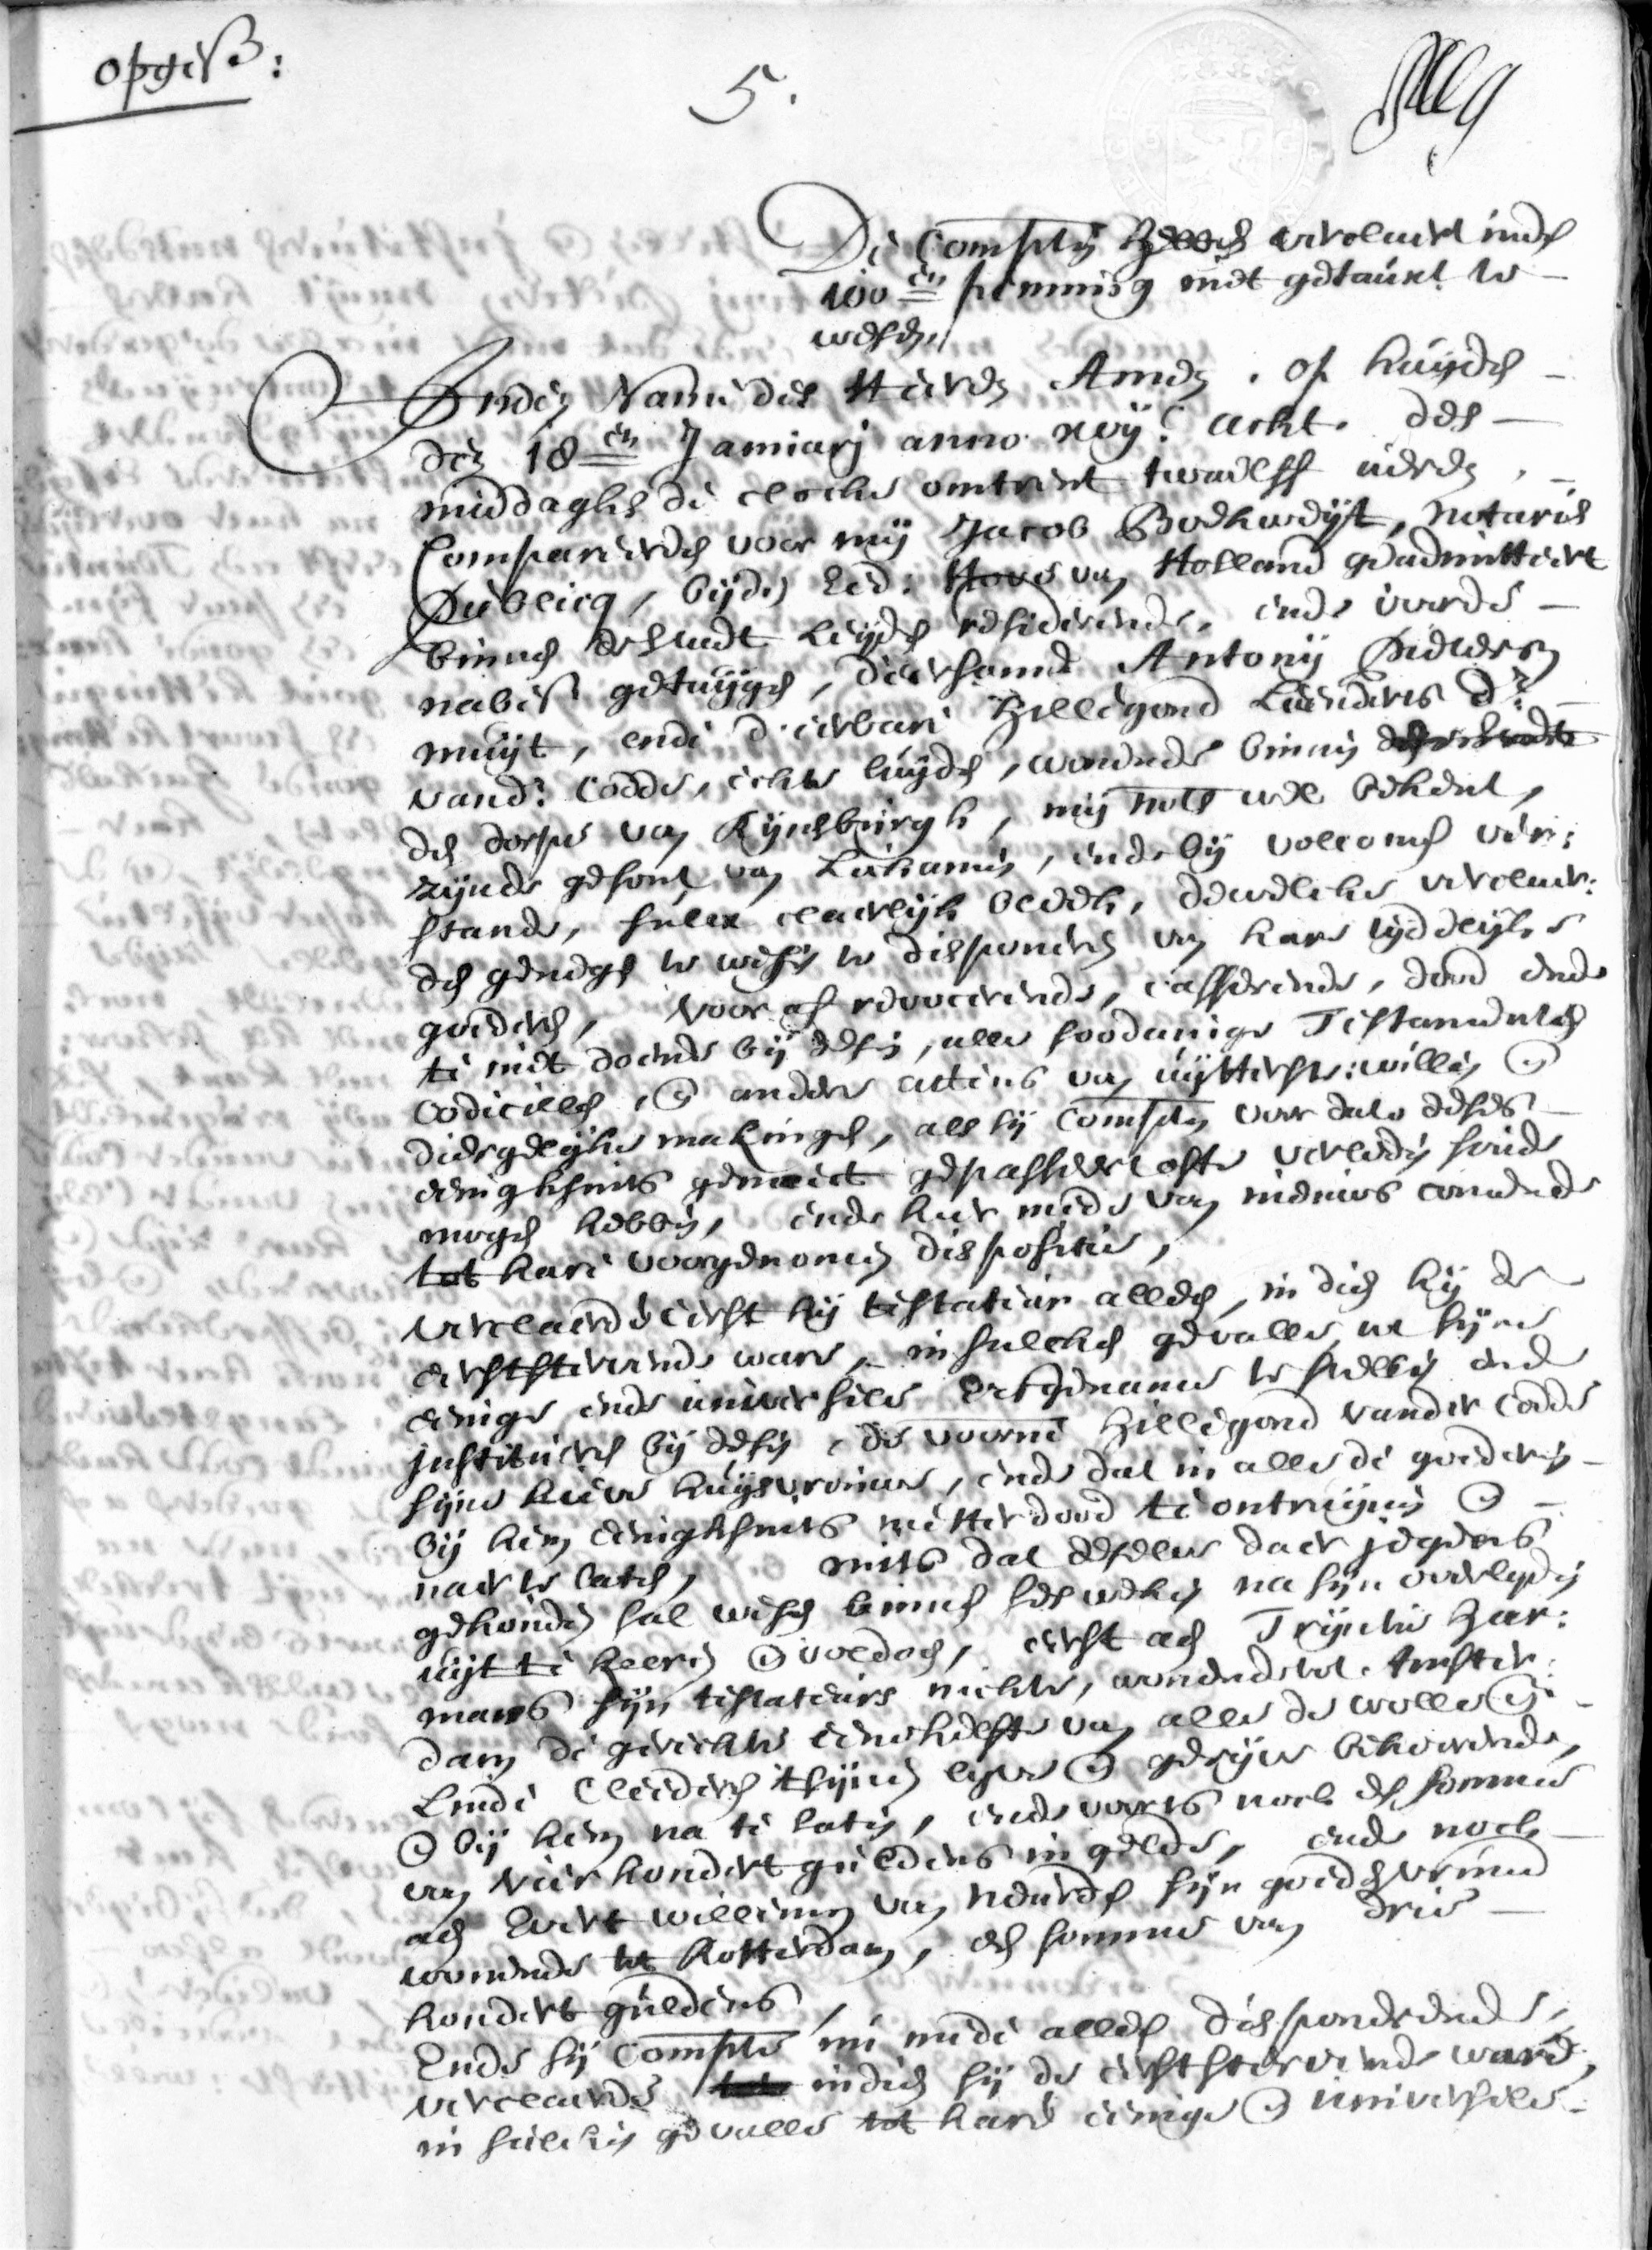 opgest:
5.
De Compten hebben verclaert inden
100en penning niet getauxt te
wesen
Inden Name des Heeren Amen. op huijden
den 18en Januarij anno xvijC acht. des
middaghs de clocke omtrent twaelff uieren,
Compareerden voor mij Jacob, notaris
Publicq, bijden Ed: Hove van Holland geadmitteert
binnen der stadt Leijden residerende, ende voorde
nabest getuijgen, d'eersame Antonij Pieters
muijt, ende d'eerbare Hillegond Leenderts dr.
vand: Codde, echte luijden, wonende binnen der stadt
den dorpe van Rijnsburgh, mij nots wel bekent,
zijnde gesont van Lichamen, ende bij volcomen ver:
stande, sulcx claerlijk bleek, dewelcke verclaer:
den genegen te wesen te disponeren van hare tijdelijke
goederen, voor af revocerende, casserende, dood ende
te niet doende bij desen, alle soodanige Testamenten
Codicillen, & andere actens van uijtterste: willen &
diergelijke makingen, als sij Compten voor date deses
eenighsints gemaect gepasseert ofte verleden soude
mogen hebben, ende hier mede van nieuws comende
tot hare voorgenomen dispositie,
verclaerde eerst hij testateur alleen, in dien hij de
eerststervende ware, in sulcken gevalle, te sijne
eenige ende universele erfgename te stellen ende
institueren bij desen, de voorne Hillegond vander Codde
sijne lieve huijsvrouwe, ende dat in alle de goederen
bij hem eenighsints metter dood te ontruijmen &
naer te laten, mits dat deselve daer jegens
gehouden sal wesen binnen ses weken na sijn overlijden
uijt te keeren & voldoen, eerst aen Trijntie Har:
mans sijn testateurs nichte, wonende tot Amster:
dam de gerechte eene helfte van alle de wolle &
Linde Cleederen t'sijnen lijve & gerijve behoorende,
& bij hem na te laten, ende voorts noch de somme
van vier hondert guldens in gelde, ende noch
aen Evert Willemsz van Neurden sijn goede vriend
wonende tot Rotterdam, de somme van drie
hondert guldens,
Ende sij Compte nu mede alleen disponerende,
verclaerde indien sij de eerststervende ware,
in sulcken gevalle tot hare eenige & universele